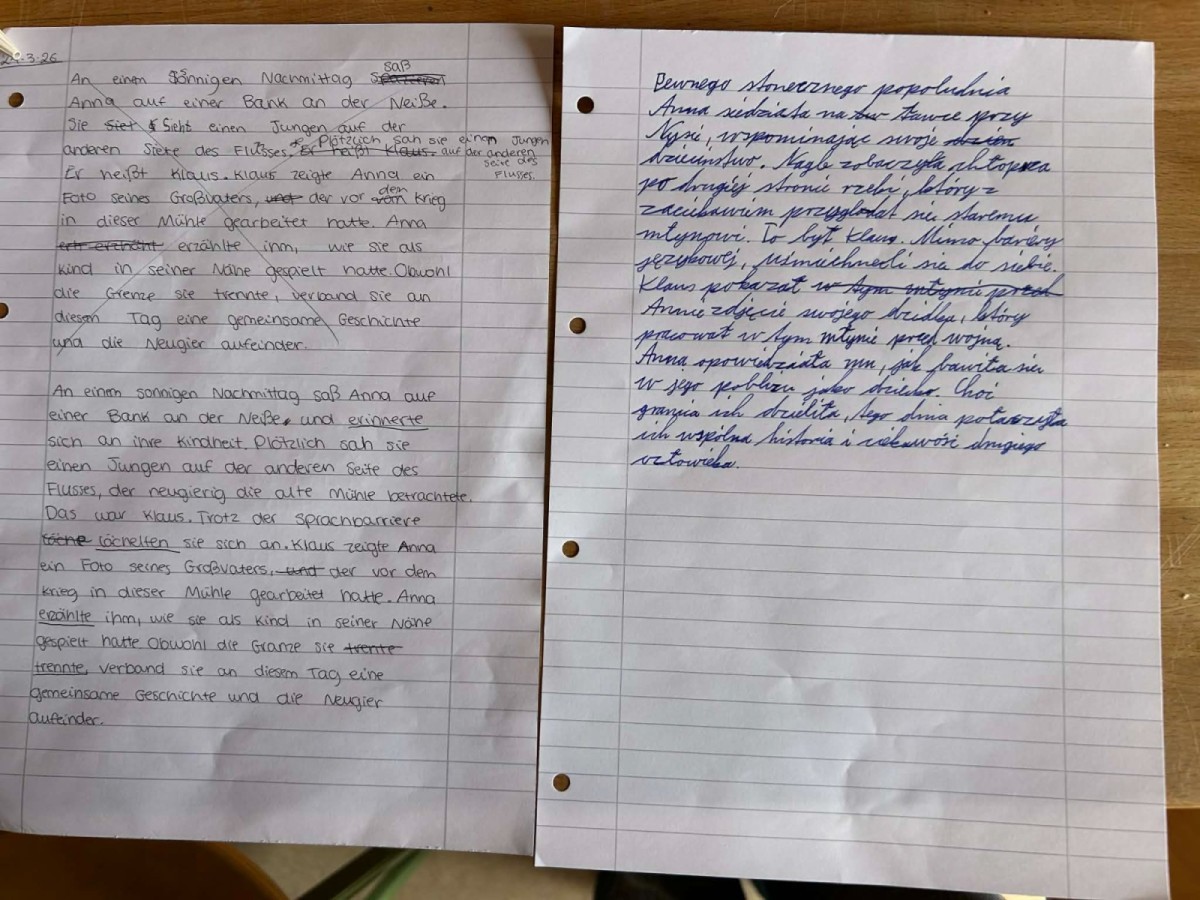 .3.26
An einem Sonnigen Nachmittag saß
Anna auf einer Bank an der Neiße.
Sie Sieht einen Jungen auf der
anderen Siete des Flusses. Plötzlich sah sie einen Jungen
auf der anderen
seite des
Flusses.
Er heißt Klaus. Klaus zeigte Anna ein
Foto seines Großvaters, und der vor dem Krieg
in dieser Mühle gearbeitet hatte. Anna
erzählte ihm, wie sie als
kind in seiner Nähe gespielt hatte. Obwohl
die Grenze sie trennte, verband sie an
diesem Tag eine gemeinsame Geschichte
und die Neugier aufeinder.
An einem sonnigen Nachmittag saß Anna auf
einer Bank an der Neiße, und erinnerte
sich an ihre Kindheit. Plötzlich sah sie
einen Jungen auf der anderen Seite des
Flusses, der neugierig die alte Mühle betrachtete.
Das war Klaus. Trotz der sprachbarriere
lächelten sie sich an. Klaus zeigte Anna
ein Foto seines Großvaters, und der vor dem
Krieg in dieser Mühle gearbeitet hatte. Anna
erzählte ihm, wie sie als Kind in seiner Nähe
gespielt hatte. Obwohl die Granze sie trente
trennte, verband sie an diesem Tag eine
gemeinsame Geschichte und die Neugier
aufeinder.
Pewnego słonecznego popołudnia
Anna siedziała na ław ławce przy
Nysie, wspominając swoje dzień
dzieciństwo. Nagle zobaczyła chłopca
po drugiej stronie rzeki, który z
zaciekawiem przyglądał się staremu
młynowi. To był Klaus. Mimo bariery
językowej, uśmiechneli się do siebie.
Klaus pokazał w tym młynie przed
Annie zdjęcie swojego dziadka, który
pracował w tym młynie przed wojną.
Anna opowiedziała mu, jak bawiła się
w jego pobliżu jako dziecko. Choć
granica ich dzieliła, tego dnia połączyła
ich wspólna historia i ciekawość drugiego
człowieka.